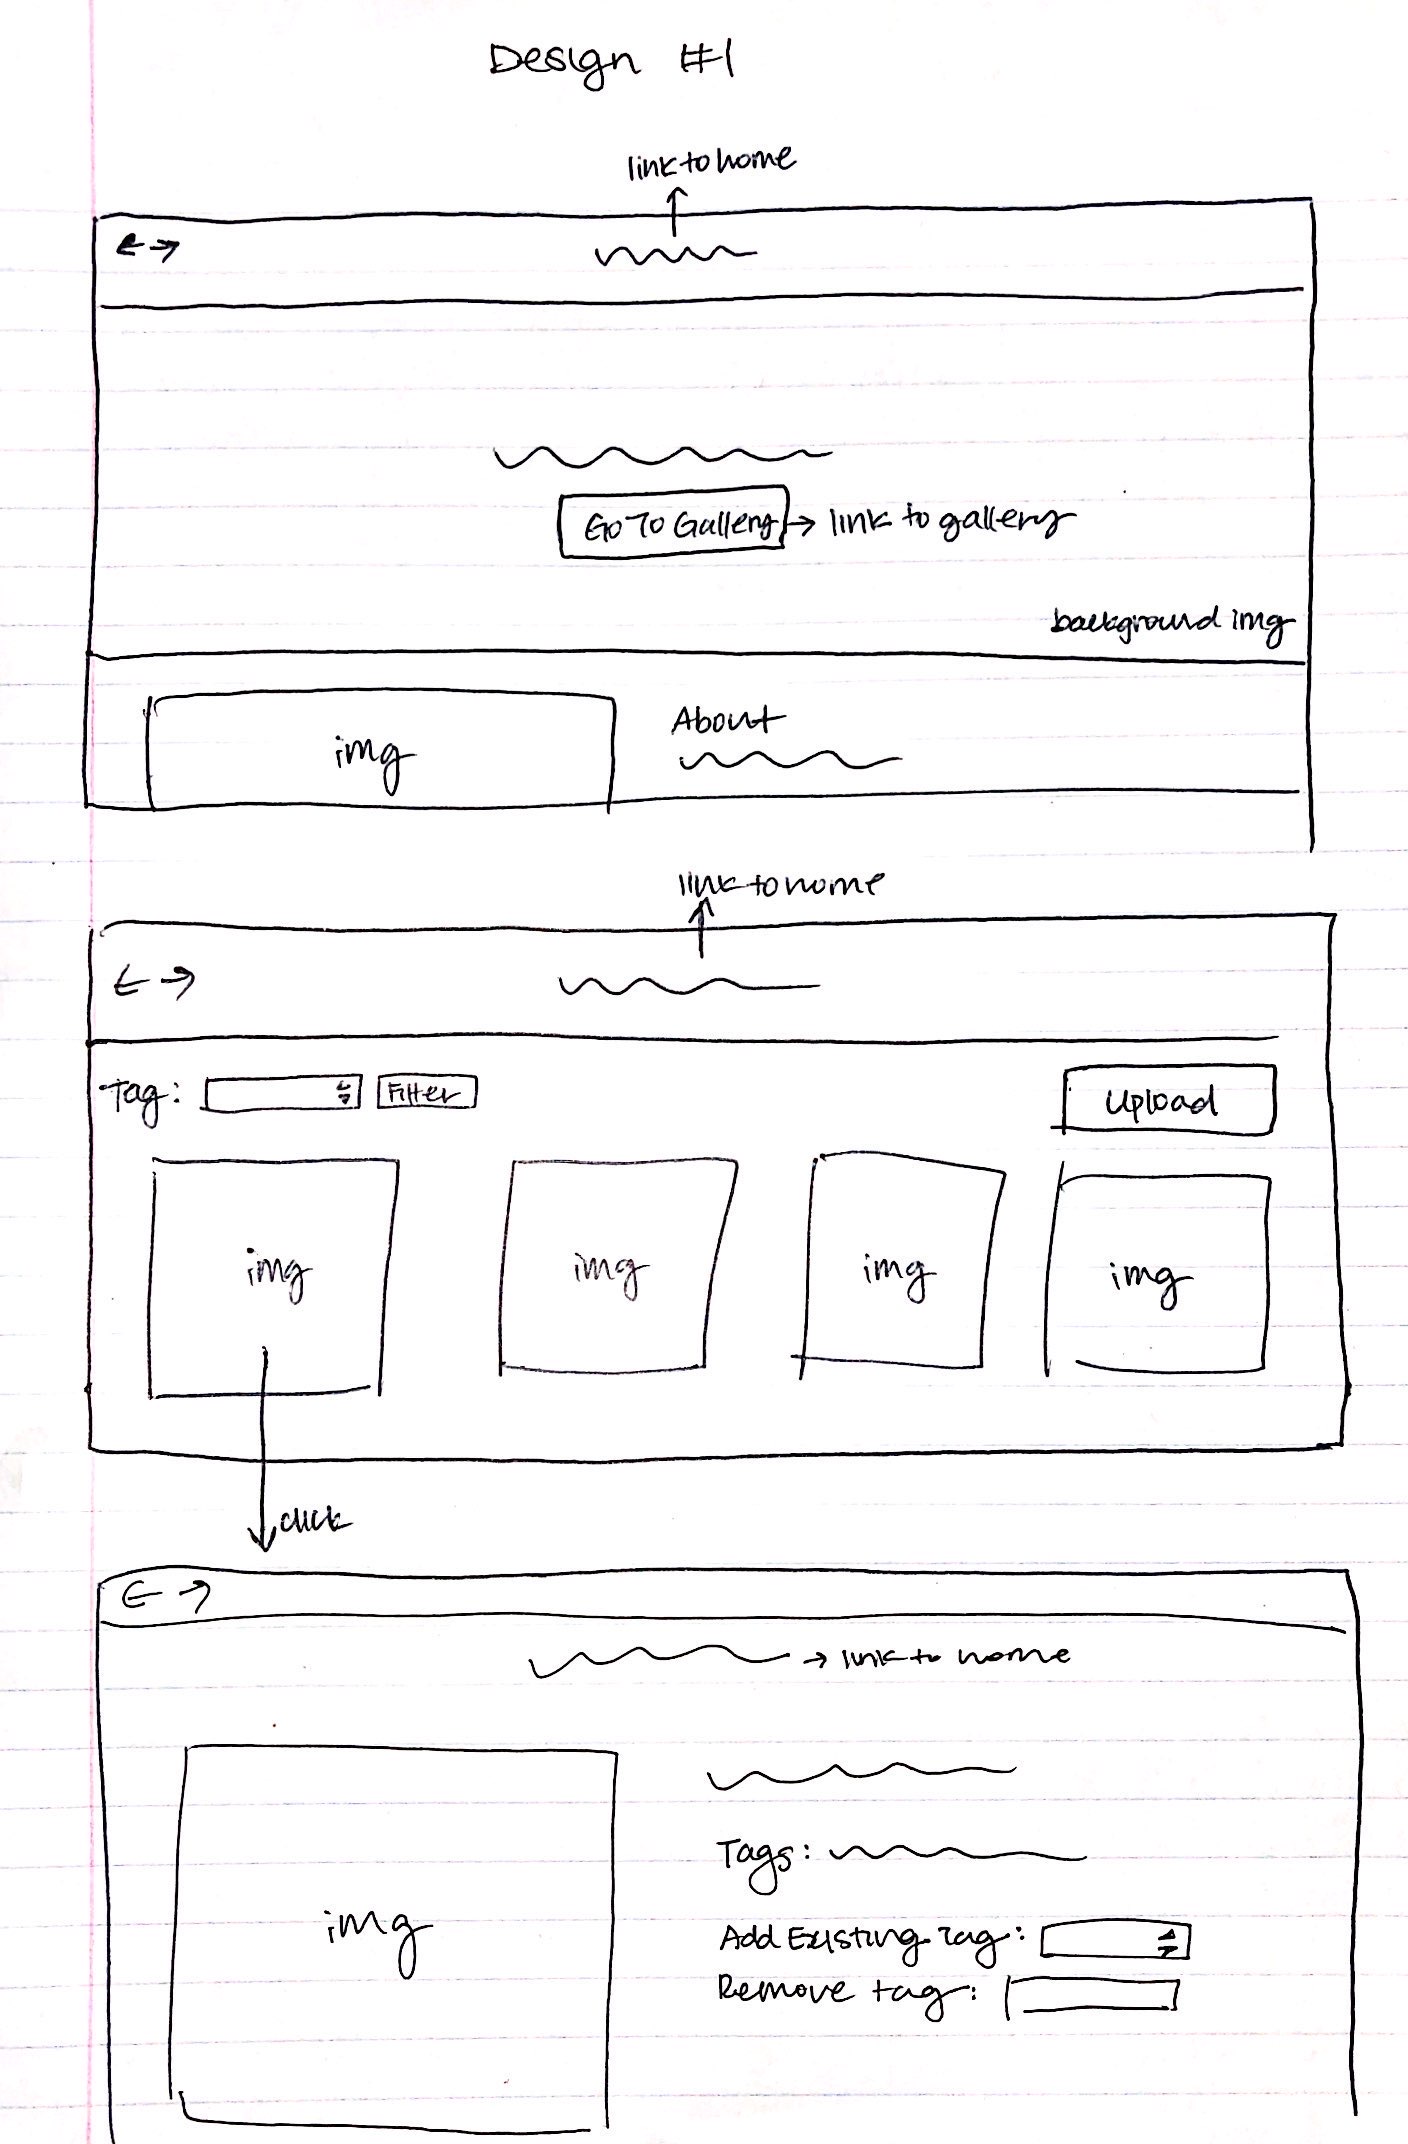 Design #1
link to home
Go To Gallery → link to gallery
background img
img
About
link to home
Tag:
Filter
Upload
img
img
img
img
click
→ link to home
Tags:
img
Add Existing Tag:
Remove tag: